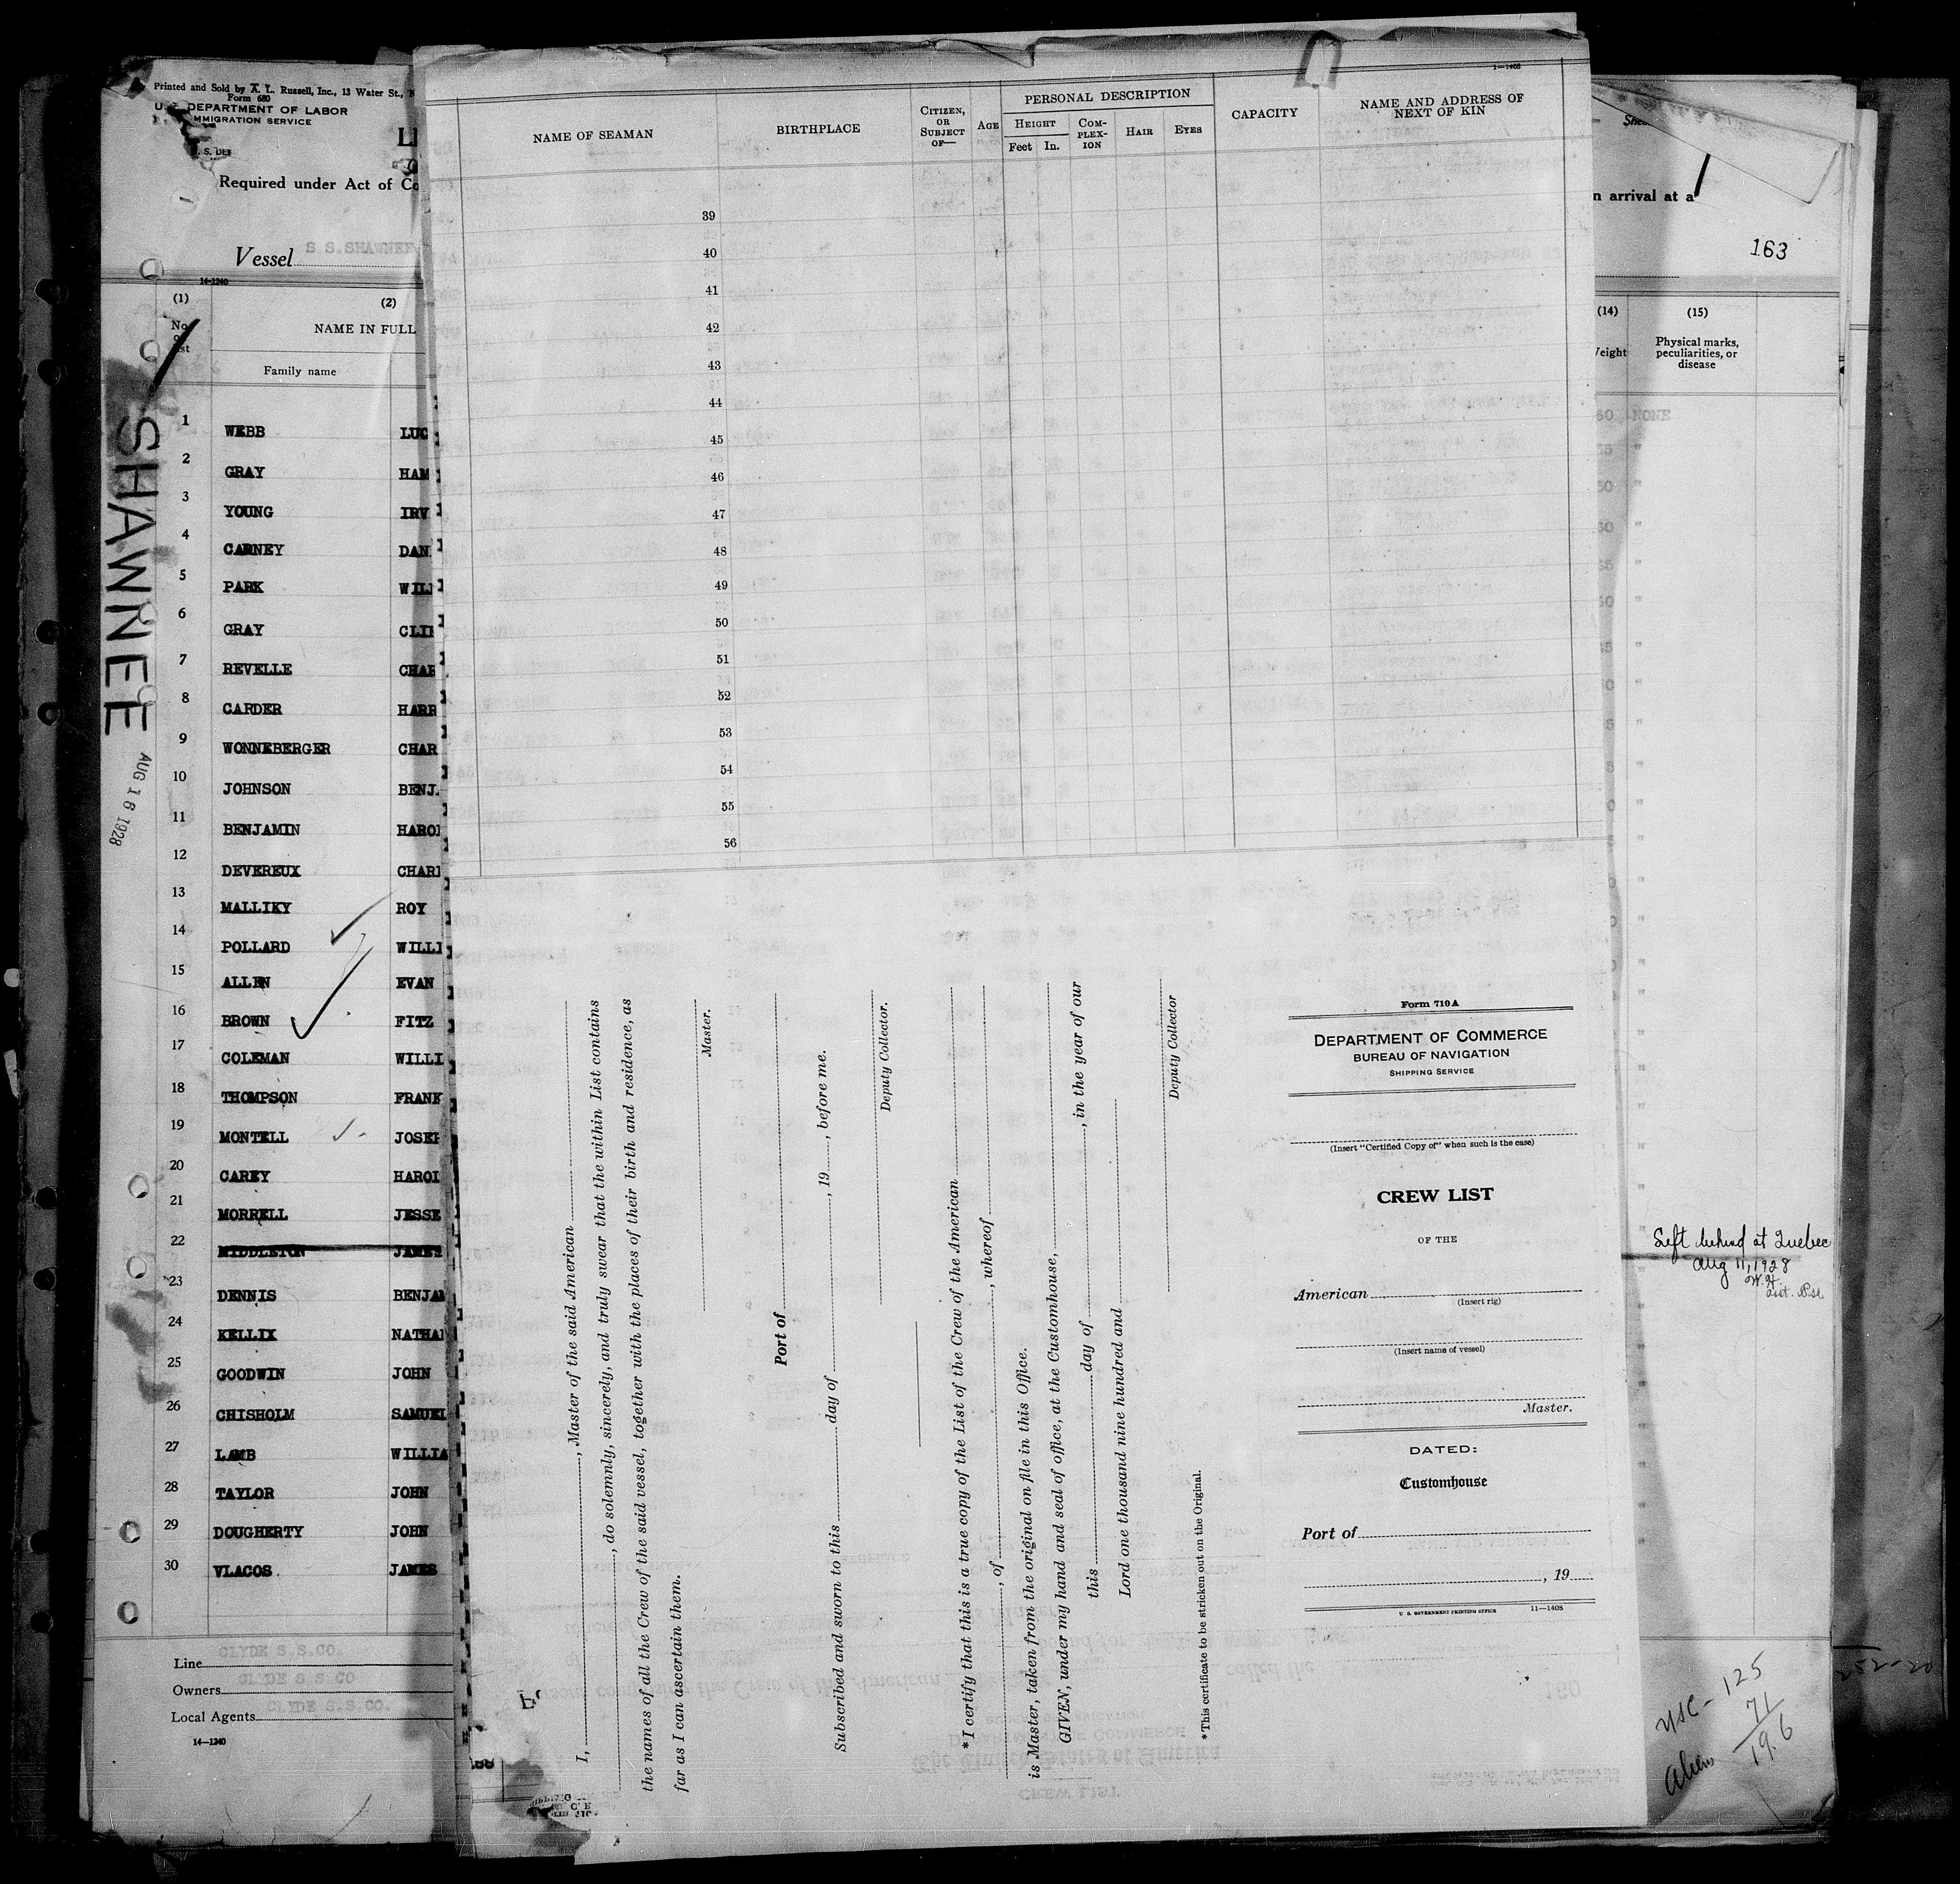 Printed and Sold by A. L. Russell, Inc., 13 Water St.,
Form 680
U. S. DEPARTMENT OF LABOR
MMIGRATION SERVICE
. S. DE
LI
Required under Act of Co
Vessel S S.SHAWNEE
14-1240
(1)
(2)
No
NAME IN FULL
Family name
SHAWNEE
AUG 16 1928
1 WEBB LUC
2 GRAY HAM
3 YOUNG IRV
4 CARNEY DAN
5 PARK WIL
6 GRAY CLI
7 REVELLE CHAR
8 CARDER HARR
9 WONNEBERGER CHAR
10 JOHNSON BENJ
11 BENJAMIN HARO
12 DEVEREUX CHAR
13 MALLIKY ROY
14 POLLARD WILLI
15 ALLEN EVAN
16 BROWN FITZ
17 COLEMAN WILLI
18 THOMPSON FRANK
19 MONTELL JOSE
20 CAREY HAROL
21 MORRELL JESSE
22 MIDDLETON JAMES
23 DENNIS BENJA
24 KELLIX NATHA
25 GOODWIN JOHN
26 CHISHOLM SAMUEL
27 LAMB WILLIA
28 TAYLOR JOHN
29 DOUGHERTY JOHN
30 VLACOS JAMES
Line CLYDE S.S.CO.
Owners CLYDE S.S CO
Local Agents CLYDE S.S CO.
14—1240
1—1408
NAME OF SEAMAN
BIRTHPLACE
CITIZEN, OR SUBJECT OF—
AGE
PERSONAL DESCRIPTION
HEIGHT
Feet In.
COM-PLEX-ION
HAIR
EYES
CAPACITY
NAME AND ADDRESS OF NEXT OF KIN
39
40
41
42
43
44
45
46
47
48
49
50
51
52
53
54
55
56
I, , Master of the said American
, do solemnly, sincerely, and truly swear that the within List contains
the names of all the Crew of the said vessel, together with the places of their birth and residence, as
far as I can ascertain them.
Master.
Port of
Subscribed and sworn to this day of , 19 , before me.
Deputy Collector.
*I certify that this is a true copy of the List of the Crew of the American
, of , whereof
is Master, taken from the original on file in this Office.
GIVEN, under my hand and seal of office, at the Customhouse,
this day of , in the year of our
Lord one thousand nine hundred and
Deputy Collector
*This certificate to be stricken out on the Original.
Form 710 A
DEPARTMENT OF COMMERCE
BUREAU OF NAVIGATION
SHIPPING SERVICE
(Insert "Certified Copy of" when such is the case)
CREW LIST
OF THE
American
(Insert rig)
(Insert name of vessel)
Master.
DATED:
Customhouse
Port of
, 19
U. S. GOVERNMENT PRINTING OFFICE 11—1408
n arrival at a
163
(14)
(15)
Weight
Physical marks, peculiarities, or disease
60 NONE
Left behind at Quebec
Aug 11, 1928
USC - 125
Aliens 71
196